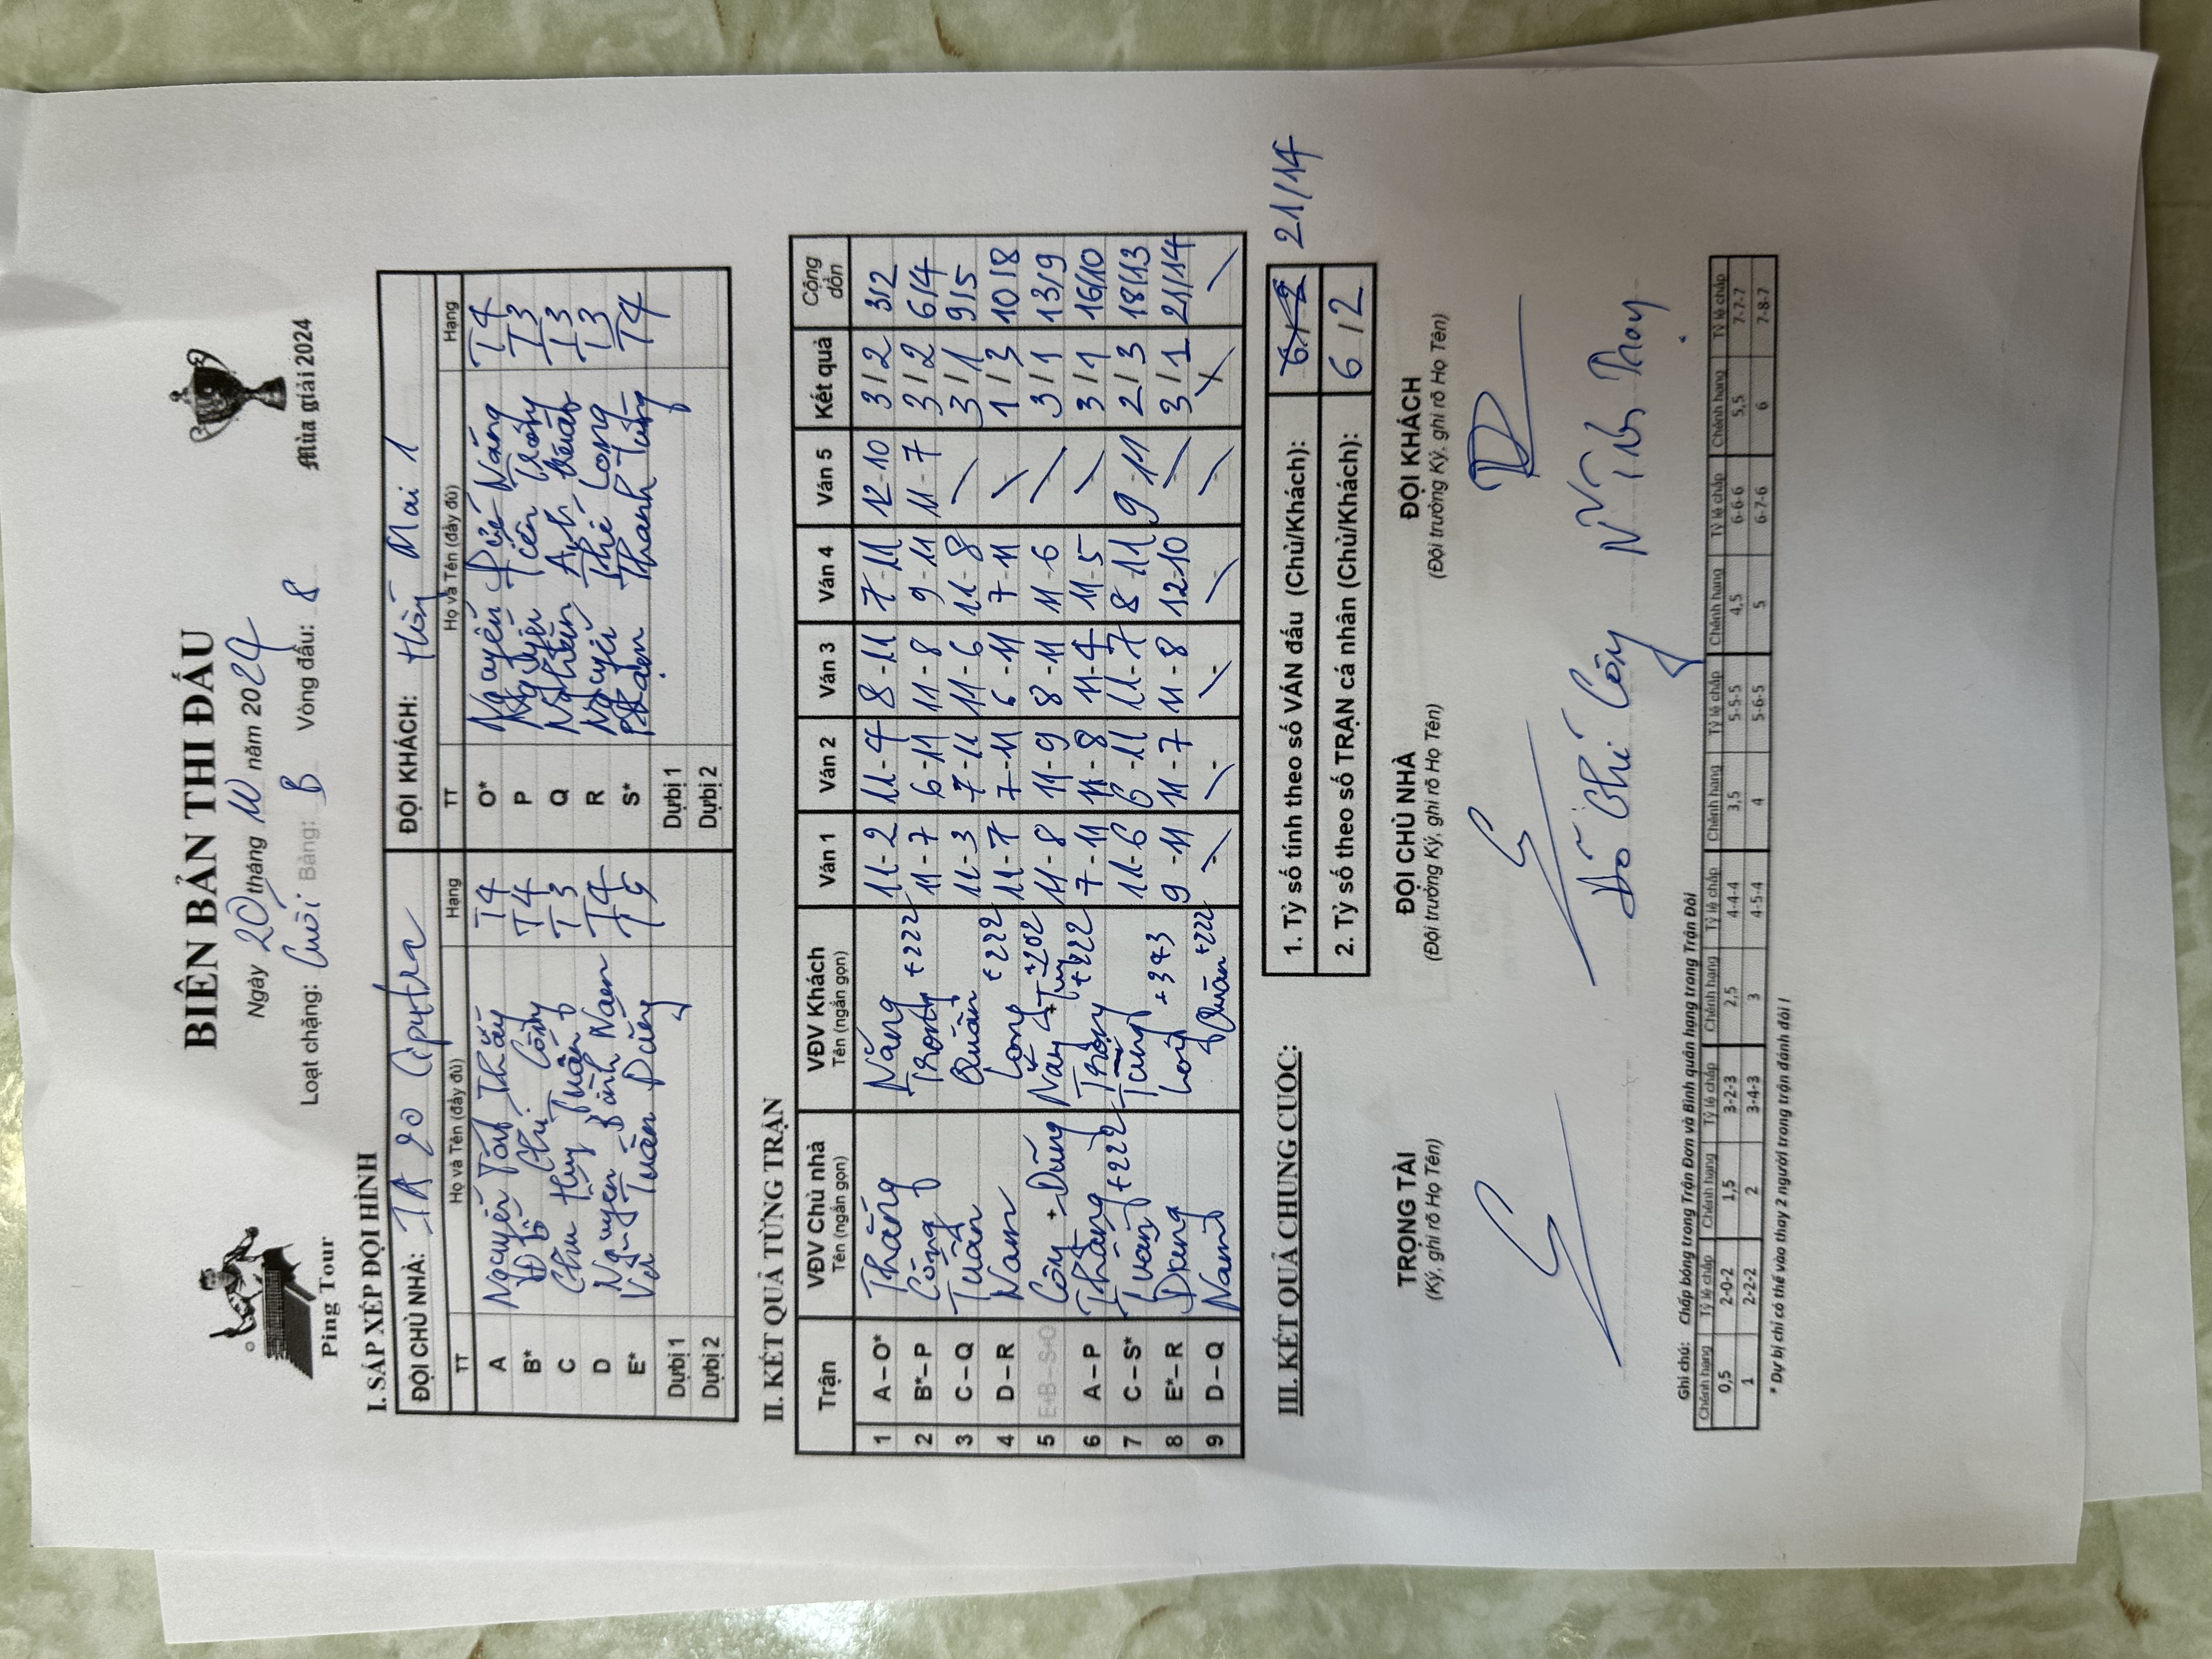 BIÊN BẢN THI ĐẤU
Ngày 20 tháng 10 năm 2024
Loạt chặng: Cuối Bảng: B Vòng đấu: 8
Ping Tour
Mùa giải 2024
I. SẮP XẾP ĐỘI HÌNH
ĐỘI CHỦ NHÀ: TA 20 ĐỘI KHÁCH: Mai 1
TT Họ và Tên (đầy đủ) Hạng TT Họ và Tên (đầy đủ) Hạng
A Nguyễn Thắng T4 O* Nguyễn Đức Năng T4
B* Đỗ Chí Công T4 P Nguyễn Tiến T3
C Chu Huy Tuấn T3 Q Anh Quân T3
D Nguyễn Nam T4 R Nguyễn Thế Long T3
E* Vũ Tuấn Dũng T5 S* Phạm Thanh Tùng T4
Dự bị 1 Dự bị 1
Dự bị 2 Dự bị 2
II. KẾT QUẢ TỪNG TRẬN
Trận VĐV Chủ nhà VĐV Khách Ván 1 Ván 2 Ván 3 Ván 4 Ván 5 Kết quả Cộng dồn
Tên (ngắn gọn) Tên (ngắn gọn)
1 A – O* Thắng Năng 11-2 11-4 8-11 7-11 12-10 3/2 3/2
2 B* – P Công +222 11-7 6-11 11-8 9-11 11-7 3/2 6/4
3 C – Q Tuấn Quân 11-3 7-11 11-6 11-8 3/1 9/5
4 D – R Nam Long +222 11-7 7-11 6-11 7-11 1/3 10/8
5 E+B – S+O Công + Dũng Năng + Tùng +202 11-8 11-9 8-11 11-6 3/1 13/9
6 A – P Thắng +222 7-11 11-8 11-4 11-5 3/1 16/10
7 C – S* Tuấn +222 Tùng 11-6 6-11 11-7 8-11 9-11 2/3 18/13
8 E* – R Dũng Long +343 9-11 11-7 11-8 12-10 3/1 21/14
9 D – Q Nam Quân +222
III. KẾT QUẢ CHUNG CUỘC:
1. Tỷ số tính theo số VÁN đấu (Chủ/Khách): 21/14
2. Tỷ số theo số TRẬN cá nhân (Chủ/Khách): 6/2
TRỌNG TÀI ĐỘI CHỦ NHÀ ĐỘI KHÁCH
(Ký, ghi rõ Họ Tên) (Đội trưởng Ký, ghi rõ Họ Tên) (Đội trưởng Ký, ghi rõ Họ Tên)
Đỗ Chí Công
Ghi chú: Chấp bóng trong Trận Đơn và Bình quân hạng trong Trận Đôi
Chênh hạng Tỷ lệ chấp Chênh hạng Tỷ lệ chấp Chênh hạng Tỷ lệ chấp Chênh hạng Tỷ lệ chấp Chênh hạng Tỷ lệ chấp Chênh hạng Tỷ lệ chấp
0,5 2-0-2 1,5 3-2-3 2,5 4-4-4 3,5 5-5-5 4,5 6-6-6 5,5 7-7-7
1 2-2-2 2 3-4-3 3 4-5-4 4 5-6-5 5 6-7-6 6 7-8-7
* Dự bị chỉ có thể vào thay 2 người trong trận đánh đôi !